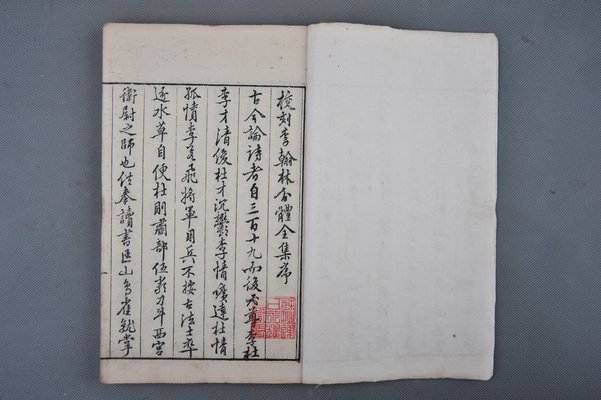 校刻李翰林分體全集序
古今論詩者自三百十九而後必尊李杜
李才清俊杜才沉鬱李情曠達杜情
孤憤李若飛將軍用兵不按古法士卒
逐水草自便杜則肅部伍嚴刀斗西宮
衛尉之師也供奉讀書匡山鳥雀就掌